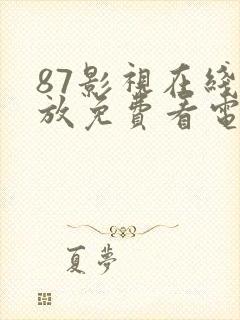 87影視在綫
放免費看電
夏夢